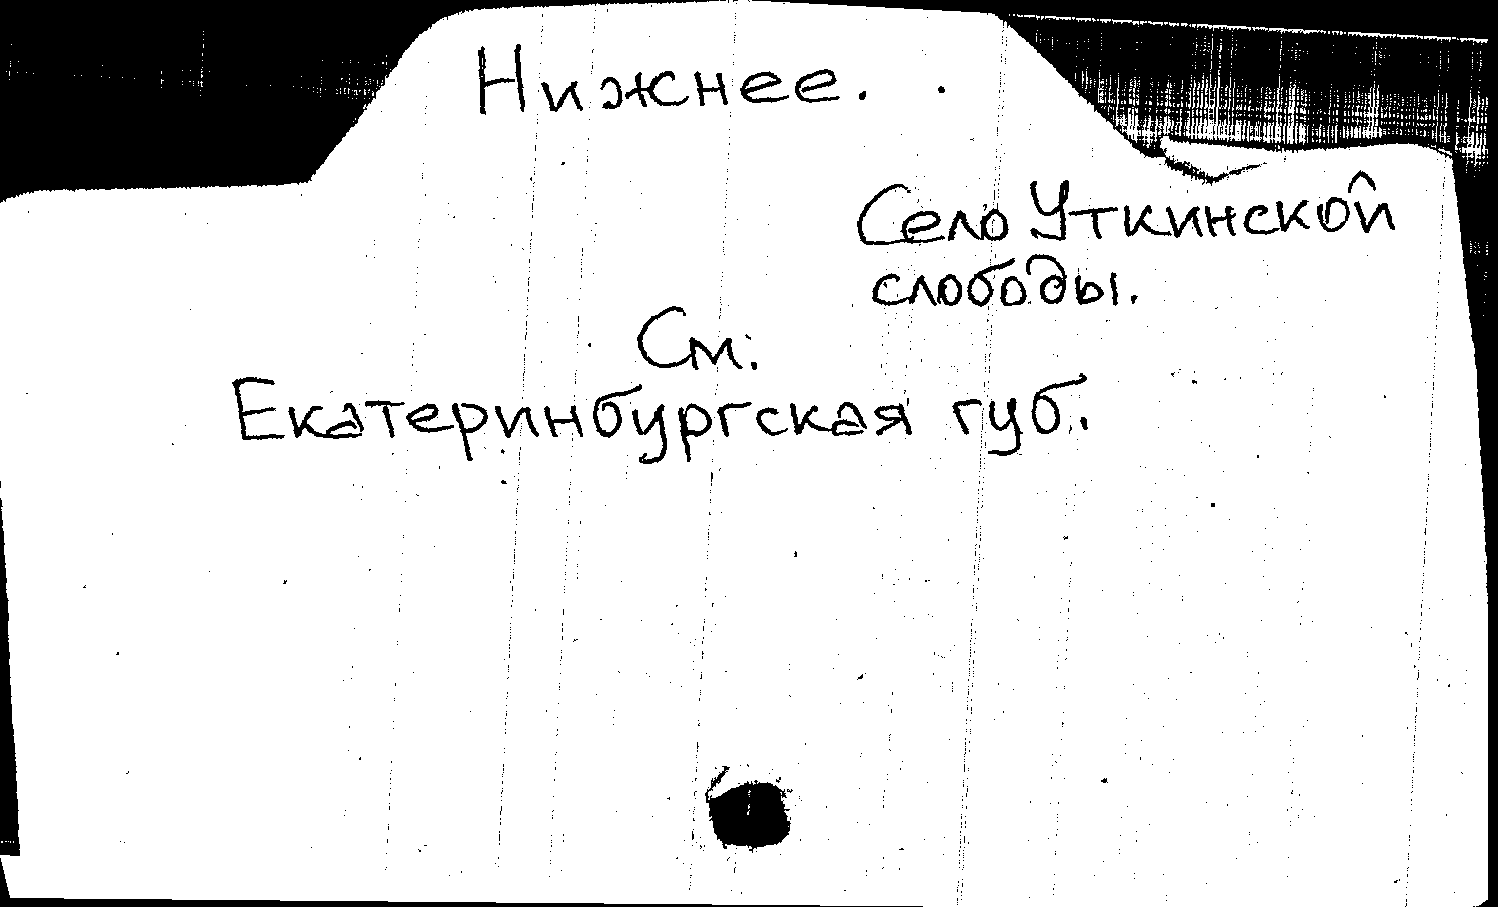 Нижнее.
Село Уткинской
слободы.
См.
Екатеринбургская губ.